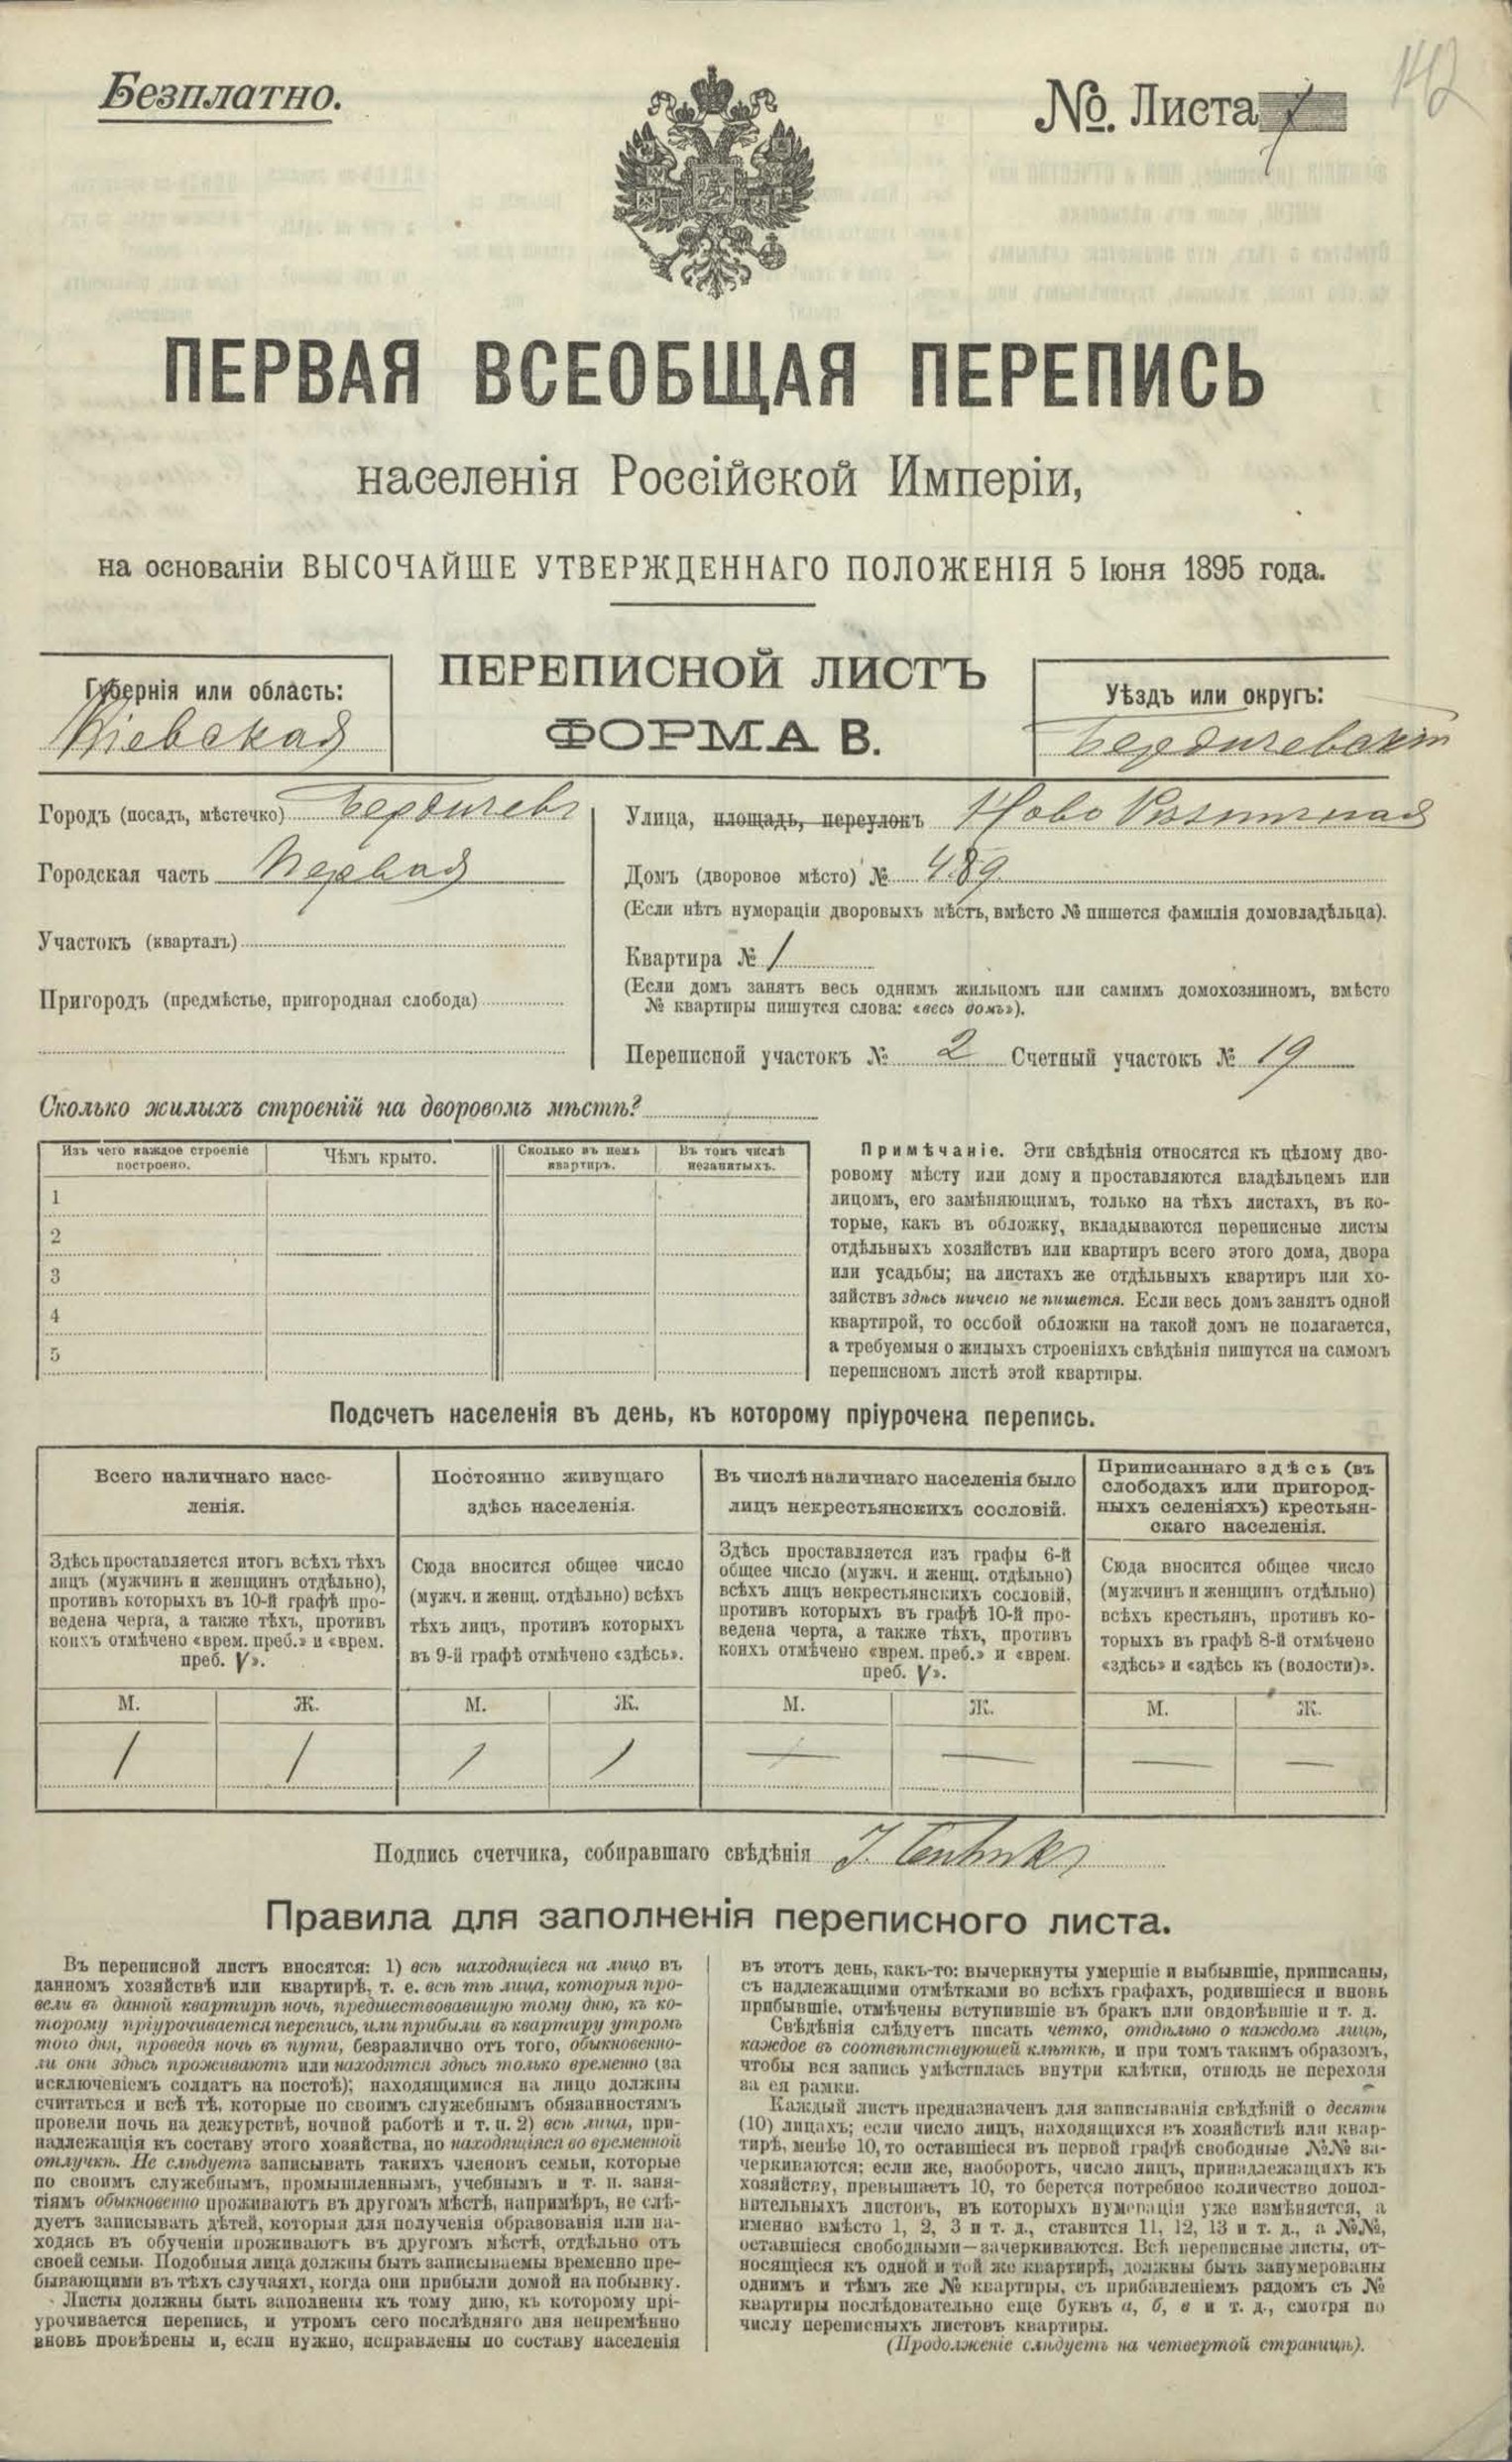 142
Безплатно.
№. Листа 7
ПЕРВАЯ ВСЕОБЩАЯ ПЕРЕПИСЬ
населенія Россійской Имперіи,
на основаніи ВЫСОЧАЙШЕ УТВЕРЖДЕННАГО ПОЛОЖЕНІЯ 5 Іюня 1895 года.
ПЕРЕПИСНОЙ ЛИСТЪ
ФОРМА В.
Губернія или область:
Кіевская
Уѣздъ или округъ:
Бердичевскій
Городъ (посадъ, мѣстечко) Бердичевъ
Городская часть Первая
Участокъ (кварталъ)
Пригородъ (предмѣстье, пригородная слобода)
Улица, площадь, переулокъ Ново
Домъ (дворовое мѣсто) № 489
(Если нѣтъ нумораціи дворовыхъ мѣстъ, вмѣсто № пишется фамилія домовладѣльца).
Квартира № 1
(Если домъ занятъ весь однимъ жильцомъ или самимъ домохозяиномъ, вмѣсто
№ квартиры пишутся слова: «весь домъ»).
Переписной участокъ № 2 Счетный участокъ № 19
Сколько жилыхъ строеній на дворовомъ мѣстѣ?
Изъ чего каждое строеніе
построено.
Чѣмъ крыто.
Сколько въ немъ
квартиръ.
Въ томъ числѣ
незанятыхъ.
1
2
3
4
5
Примѣчаніе. Эти свѣдѣнія относятся къ цѣлому дво-
ровому мѣсту или дому и проставляются владѣльцемъ или
лицомъ, его замѣняющимъ, только на тѣхъ листахъ, въ ко-
торые, какъ въ обложку, вкладываются переписные листы
отдѣльныхъ хозяйствъ или квартиръ всего этого дома, двора
или усадьбы; на листахъ же отдѣльныхъ квартиръ или хо-
зяйствъ здѣсь ничего не пишется. Если весь домъ занятъ одной
квартирой, то особой обложки на такой домъ не полагается,
а требуемыя о жилыхъ строеніяхъ свѣдѣнія пишутся на самомъ
переписномъ листѣ этой квартиры.
Подсчетъ населенія въ день, къ которому пріурочена перепись.
Всего наличнаго насе-
ленія.
Здѣсь проставляется итогъ всѣхъ тѣхъ
лицъ (мужчинъ и женщинъ отдѣльно),
противъ которыхъ въ 10-й графѣ про-
ведена черта, а также тѣхъ, противъ
коихъ отмѣчено «врем. преб.» и «врем.
преб. V».
М. Ж.
1 1
Постоянно живущаго
здѣсь населенія.
Сюда вносится общее число
(мужч. и женщ. отдѣльно) всѣхъ
тѣхъ лицъ, противъ которыхъ
въ 9-й графѣ отмѣчено «здѣсь».
М. Ж.
1 1
Въ числѣ наличнаго населенія было
лицъ некрестьянскихъ сословій.
Здѣсь проставляется изъ графы 6-й
общее число (мужч. и женщ. отдѣльно)
всѣхъ лицъ некрестьянскихъ сословій,
противъ которыхъ въ графѣ 10-й про-
ведена черта, а также тѣхъ, противъ
коихъ отмѣчено «врем. преб.» и «врем.
преб. V».
М. Ж.
— —
Приписаннаго здѣсь (въ
слободахъ или пригород-
ныхъ селеніяхъ) крестьян-
скаго населенія.
Сюда вносится общее число
(мужчинъ и женщинъ отдѣльно)
всѣхъ крестьянъ, противъ ко-
торыхъ въ графѣ 8-й отмѣчено
«здѣсь» и «здѣсь къ (волости)».
М. Ж.
— —
Подпись счетчика, собиравшаго свѣдѣнія
Правила для заполненія переписного листа.
Въ переписной листъ вносятся: 1) всѣ находящіеся на лицо въ
данномъ хозяйствѣ или квартирѣ, т. е. всѣ тѣ лица, которыя про-
вели въ данной квартирѣ ночь, предшествовавшую тому дню, къ ко-
торому пріурочивается перепись, или прибыли въ квартиру утромъ
того дня, проведя ночь въ пути, безразлично отъ того, обыкновенно-
ли они здѣсь проживаютъ или находятся здѣсь только временно (за
исключеніемъ солдатъ на постоѣ); находящимися на лицо должны
считаться и всѣ тѣ, которые по своимъ служебнымъ обязанностямъ
провели ночь на дежурствѣ, ночной работѣ и т. п. 2) всѣ лица, при-
надлежащія къ составу этого хозяйства, но находящіяся во временной
отлучкѣ. Не слѣдуетъ записывать такихъ членовъ семьи, которые
по своимъ служебнымъ, промышленнымъ, учебнымъ и т. п. заня-
тіямъ обыкновенно проживаютъ въ другомъ мѣстѣ, напримѣръ, не слѣ-
дуетъ записывать дѣтей, которыя для полученія образованія или на-
ходясь въ обученіи проживаютъ въ другомъ мѣстѣ, отдѣльно отъ
своей семьи. Подобныя лица должны быть записываемы временно пре-
бывающими въ тѣхъ случаяхъ, когда они прибыли домой на побывку.
Листы должны быть заполнены къ тому дню, къ которому прі-
урочивается перепись, и утромъ сего послѣдняго дня непремѣнно
вновь провѣрены и, если нужно, исправлены по составу населенія
въ этотъ день, какъ-то: вычеркнуты умершіе и выбывшіе, приписаны,
съ надлежащими отмѣтками во всѣхъ графахъ, родившіеся и вновь
прибывшіе, отмѣчены вступившіе въ бракъ или овдовѣвшіе и т. д.
Свѣдѣнія слѣдуетъ писать четко, отдѣльно о каждомъ лицѣ,
каждое въ соотвѣтствующей клѣткѣ, и при томъ такимъ образомъ,
чтобы вся запись умѣстилась внутри клѣтки, отнюдь не переходя
за ея рамки.
Каждый листъ предназначенъ для записыванія свѣдѣній о десяти
(10) лицахъ; если число лицъ, находящихся въ хозяйствѣ или квар-
тирѣ, менѣе 10, то оставшіеся въ первой графѣ свободные №№ за-
черкиваются; если же, наоборотъ, число лицъ, принадлежащихъ къ
хозяйству, превышаетъ 10, то берется потребное количество допол-
нительныхъ листовъ, въ которыхъ нумерація уже измѣняется, а
именно вмѣсто 1, 2, 3 и т. д., ставится 11, 12, 13 и т. д., а №№,
оставшіеся свободными—зачеркиваются. Всѣ переписные листы, от-
носящіеся къ одной и той же квартирѣ, должны быть занумерованы
однимъ и тѣмъ же № квартиры, съ прибавленіемъ рядомъ съ №
квартиры послѣдовательно еще буквъ а, б, в и т. д., смотря по
числу переписныхъ листовъ квартиры.
(Продолженіе слѣдуетъ на четвертой страницѣ).